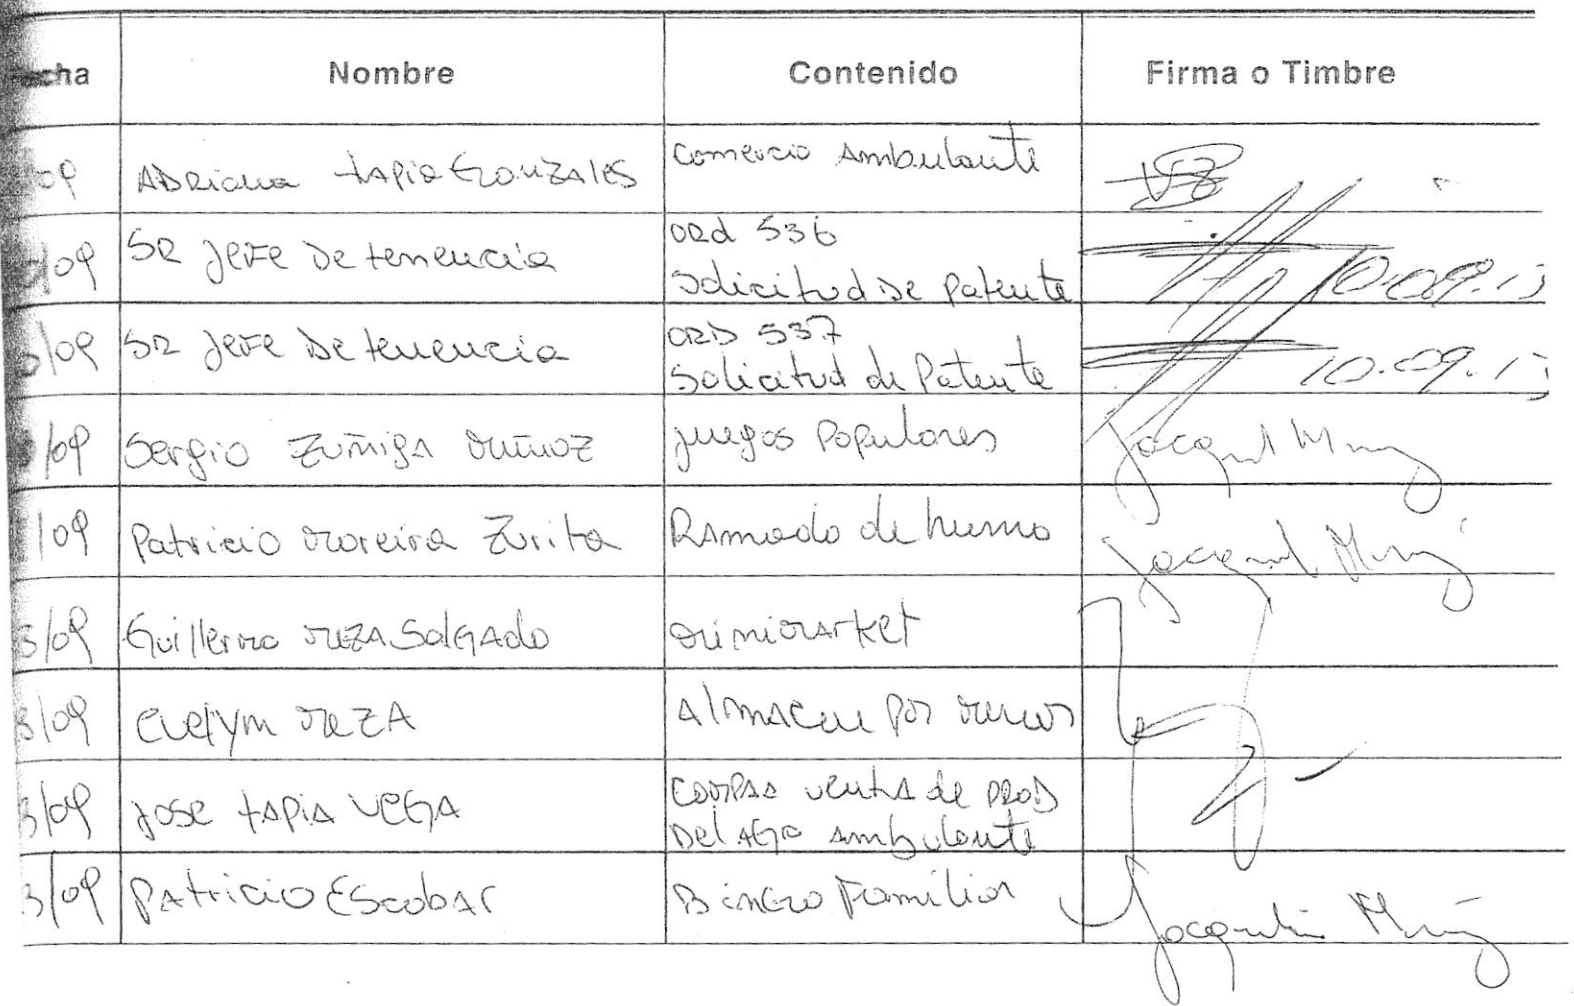 cha Nombre Contenido Firma o Timbre
/09 ADRiana tapia GonzALES Comercio Ambulante
/09 SR Jefe De tenencia ORd 536
Solicitud De Patente 10.09.13
/09 SR Jefe De tenencia ORD 537
Solicitud de Patente 10.09.13
/09 Sergio Zuñiga muñoz juegos Populares
/09 Patricio moreira Zurita Ramada de humo
/09 Guillermo mezA SalGAdo minimarket
3/09 Evelym mezA AlmAcen por menor
3/09 jose tapiA VEGA compra ventA de PROD
Del AGro Ambulante
3/09 Patricio EScobAr BinGo Familiar